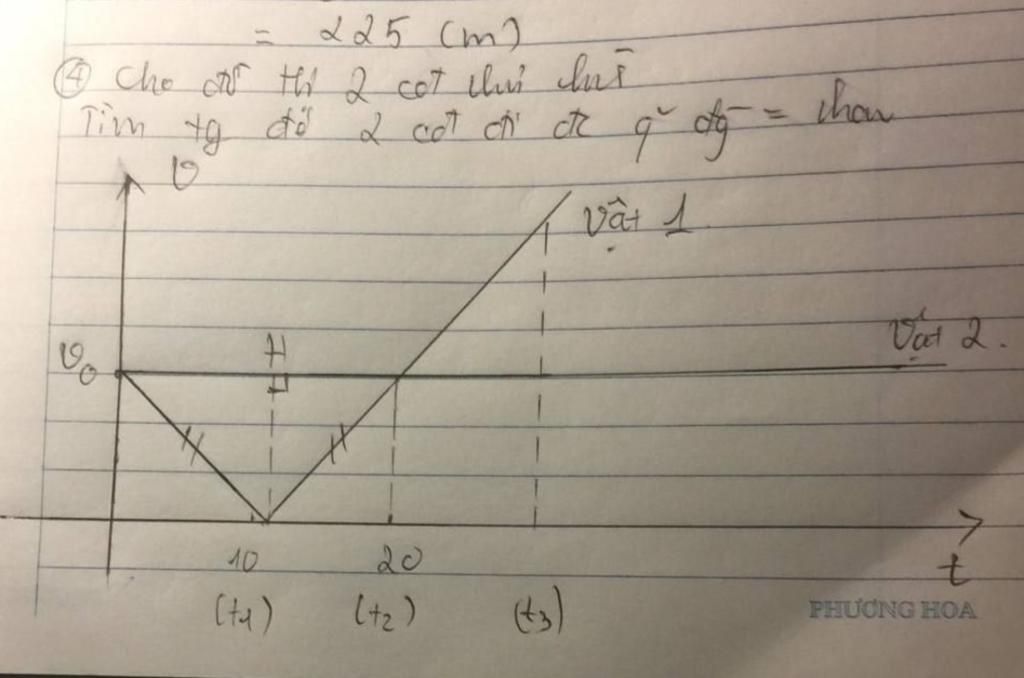 = 225 (m)
④ Cho đồ thị 2 cđ như hvẽ
Tìm tg để 2 cđ đi đc q̆ đg = nhau
v
Vật 1
v₀
H
Vật 2.
10
20
t
(t₁)
(t₂)
(t₃)
PHƯƠNG HOA